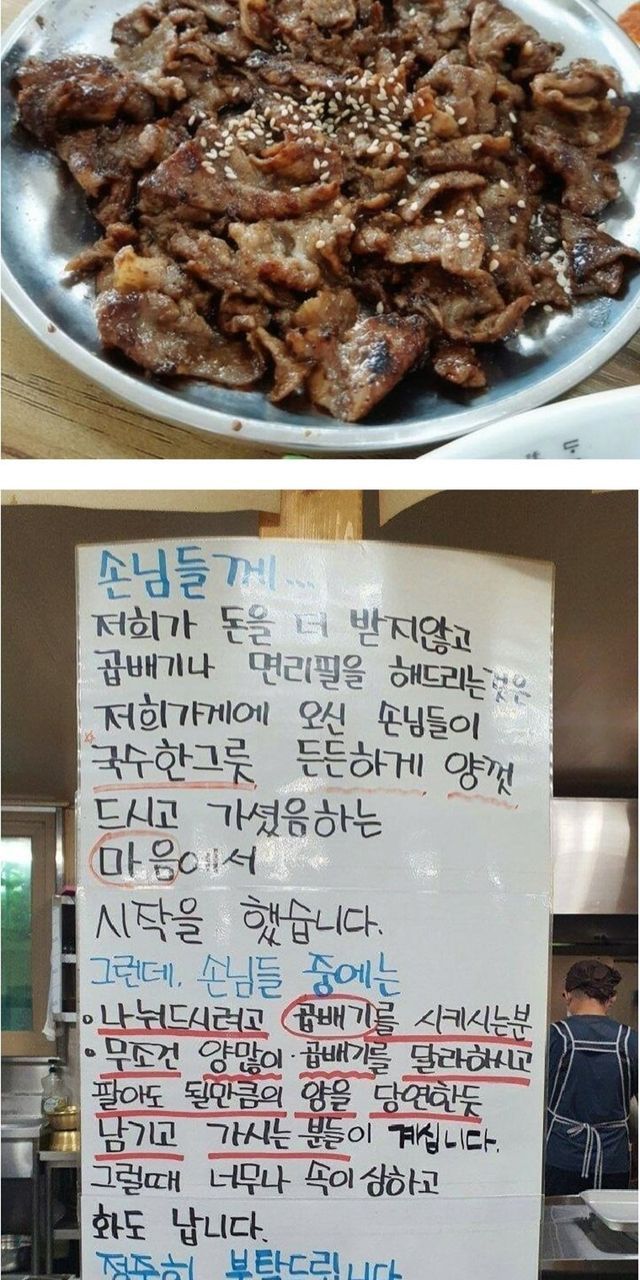 손님들께...
저희가 돈을 더 받지않고
곱배기나 면리필을 해드리는것은
저희가게에 오신 손님들이
☆국수한그릇 든든하게 양껏
드시고 가셨음하는
마음에서
시작을 했습니다.
그런데, 손님들 중에는
• 나눠드시려고 곱배기를 시키시는분
• 무조건 양많이·곱배기를 달라하시고
팔아도 될만큼의 양을 당연한듯
남기고 가시는 분들이 계십니다.
그럴때 너무나 속이상하고
화도 납니다.
정중히 부탁드립니다